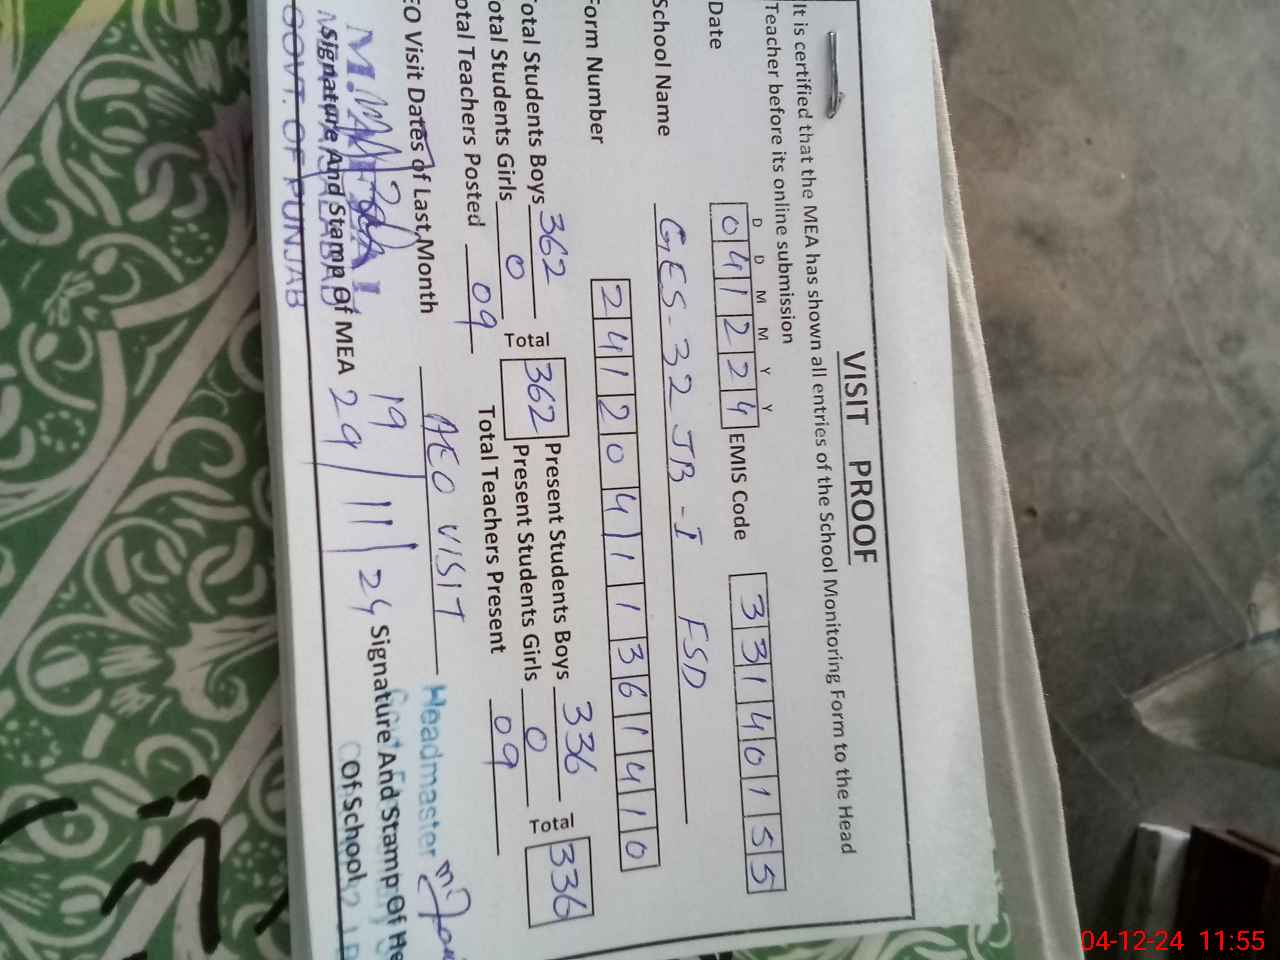 VISIT PROOF
It is certified that the MEA has shown all entries of the School Monitoring Form to the Head
Teacher before its online submission
D D M M Y Y
Date 041224 EMIS Code 33140155
School Name GES-32 JB-I FSD
Form Number 24120411361410
otal Students Boys 362 Total 362 Present Students Boys 336 Total 336
otal Students Girls 0 Present Students Girls 0
otal Teachers Posted 09 Total Teachers Present 09
EO Visit Dates of Last Month AEO VISIT
Headmaster
19
29/11/24
Signature And Stamp Of MEA Signature And Stamp Of He
Of School
GOVT. OF PUNJAB
04-12-24 11:55